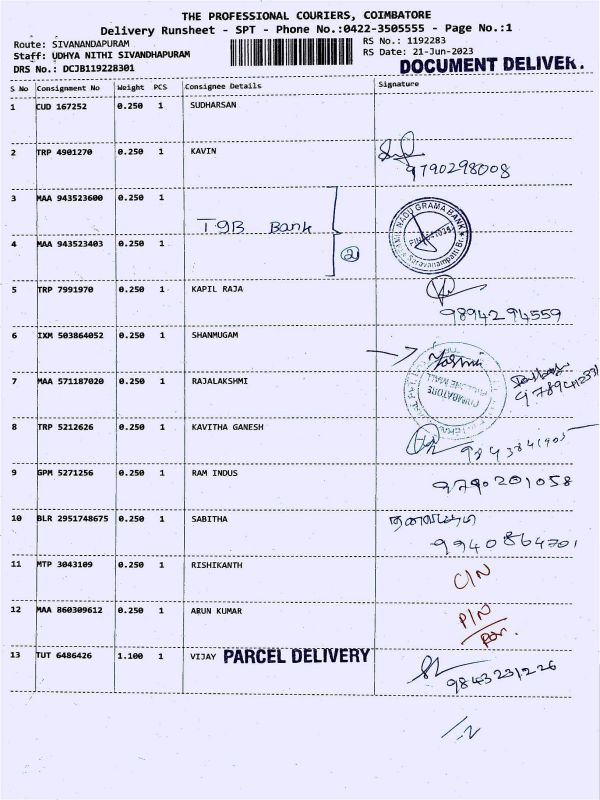 THE PROFESSIONAL COURIERS, COIMBATORE
Delivery Runsheet - SPT - Phone No.:0422-3505555 - Page No.:1
Route: SIVANANDAPURAM
RS No.: 1192283
Staff: UDHYA NITHI SIVANDHAPURAM
RS Date: 21-Jun-2023
DRS No.: DCJB119228301
DOCUMENT DELIVER.
S No Consignment No Weight PCS Consignee Details Signature
1 CUD 167252 0.250 1 SUDHARSAN
2 TRP 4901270 0.250 1 KAVIN 9790298008
3 MAA 943523600 0.250 1
TGB Bank
4 MAA 943523403 0.250 1
2
TAMIL NADU GRAMA BANK
Saravanampatti Br.
5 TRP 7991970 0.250 1 KAPIL RAJA 9894294559
6 IXM 503864052 0.250 1 SHANMUGAM
7 MAA 571187020 0.250 1 RAJALAKSHMI
COIMBATORE
8 TRP 5212626 0.250 1 KAVITHA GANESH
9 GPM 5271256 0.250 1 RAM INDUS 9790201058
10 BLR 2951748675 0.250 1 SABITHA 9940864701
11 MTP 3043109 0.250 1 RISHIKANTH C/N
12 MAA 860309612 0.250 1 ARUN KUMAR P/N
13 TUT 6486426 1.100 1 VIJAY PARCEL DELIVERY 9843231226